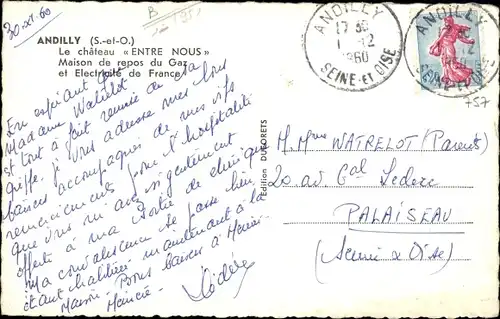 30-XI-60
B
1951
ANDILLY (S.-et-O.)
Le château « ENTRE NOUS »
Maison de repos du Gaz
et Electricité de France
En espérant que
Madame Watrelot
est tout à fait remise de sa
griffe. je vous adresse mes bons
baisers accompagnés de mes vifs
remerciements pour l'hospitalité
que vous m'avez si gentiment
offerte à ma sortie de clinique
Ma convalescence se passe bien
étant habituée maintenant à la
Maison Bons baisers à
ANDILLY
17 30
1 -12
1960
SEINE-ET-OISE
ANDILLY
SEINE-ET-OISE
757
Edition DUBORETS
M. Mme WATRELOT (Parents)
20 av. Gal Leclerc
PALAISEAU
(Seine & Oise)